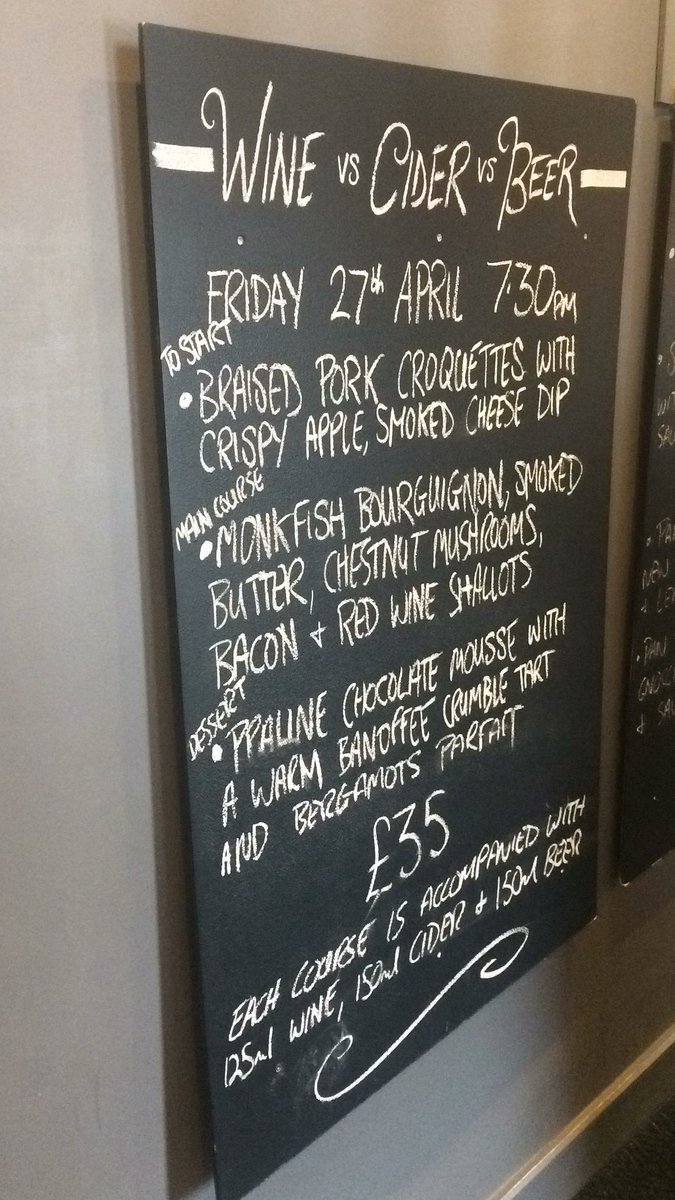 WINE vs CIDER vs BEER
FRIDAY 27th APRIL 7.30pm
TO START
• BRAISED PORK CROQUETTES WITH
CRISPY APPLE, SMOKED CHEESE DIP
MAIN COURSE
• MONKFISH BOURGUIGNON, SMOKED
BUTTER, CHESTNUT MUSHROOMS,
BACON + RED WINE SHALLOTS
DESSERT
• PPALINE CHOCOLATE MOUSSE WITH
A WARM BANOFFEE CRUMBLE TART
AND BERGAMOTS PARFAIT
£35
EACH COURSE IS ACCOMPANIED WITH
125ml WINE, 150ml CIDER + 150ml BEER
NEW